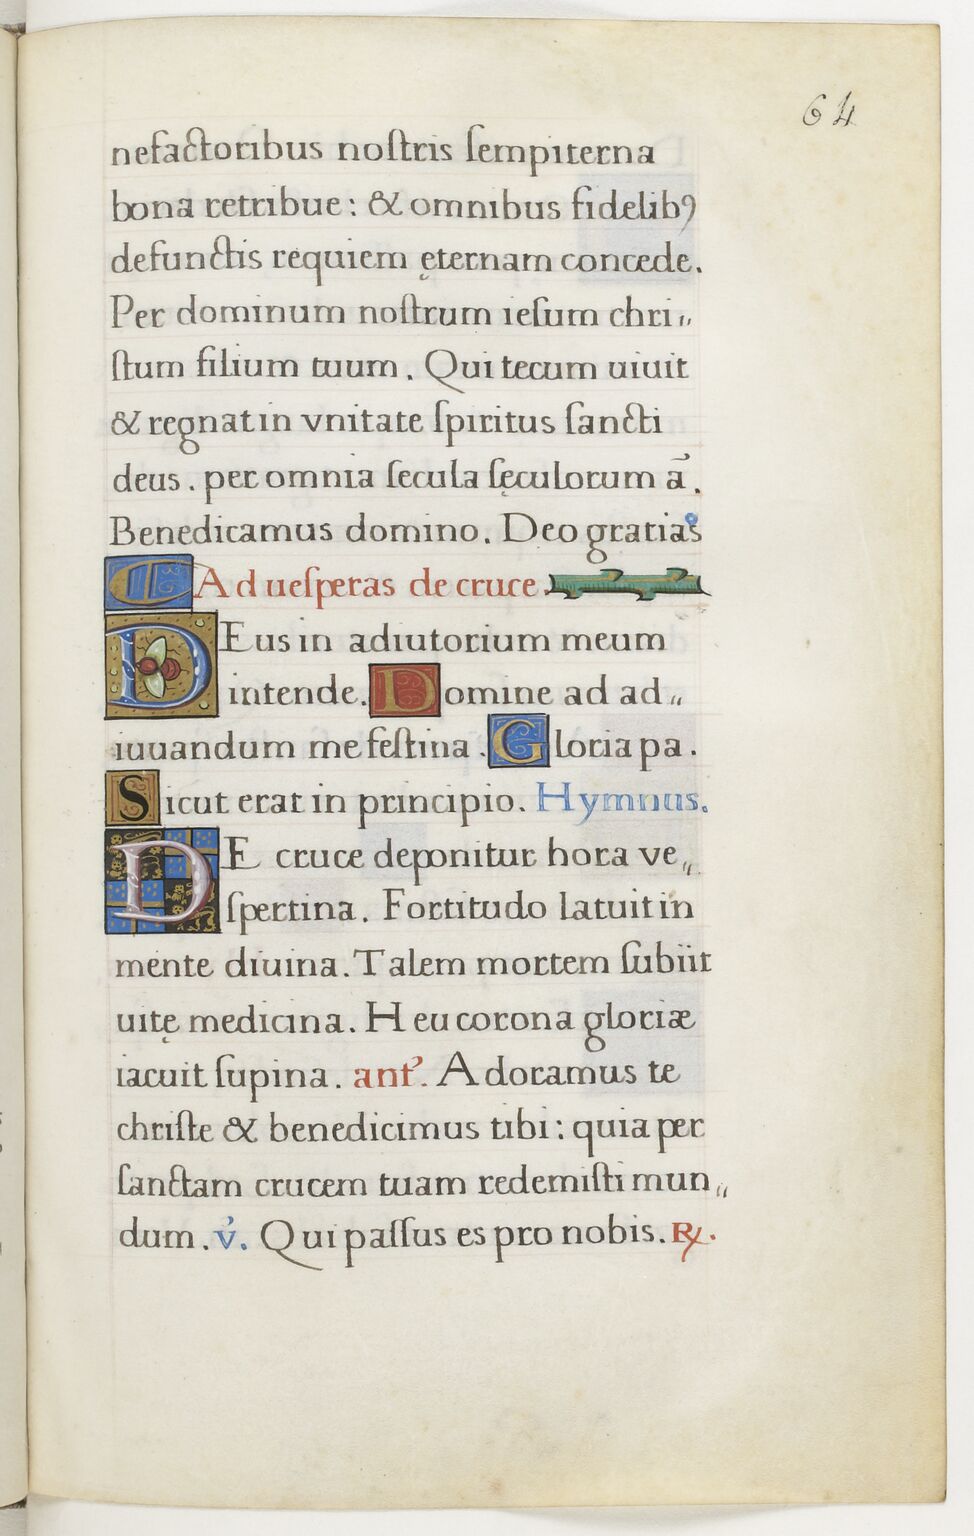 64
nefactoribus noſtris ſempiterna
bona retribue: & omnibus fidelibꝰ
defunctis requiem ęternam concede.
Per dominum noſtrum ieſum chri〃
ſtum filium tuum. Qui tecum uiuit
& regnat in vnitate ſpiritus ſancti
deus. per omnia ſecula ſęculorum a̅.
Benedicamus domino. Deo gratias
Ad ueſperas de cruce.
DEus in adiutorium meum
intende. Domine ad ad〃
iuuandum me feſtina. Gloria pa.
Sicut erat in principio. Hymnus.
DE cruce deponitur hora ve〃
ſpertina. Fortitudo latuit in
mente diuina. Talem mortem ſubiit
uitę medicina. Heu corona gloriæ
iacuit ſupina. antʼ. Adoramus te
chriſte & benedicimus tibi: quia per
ſanctam crucem tuam redemiſti mun〃
dum. v̓. Qui paſſus es pro nobis. ℞.